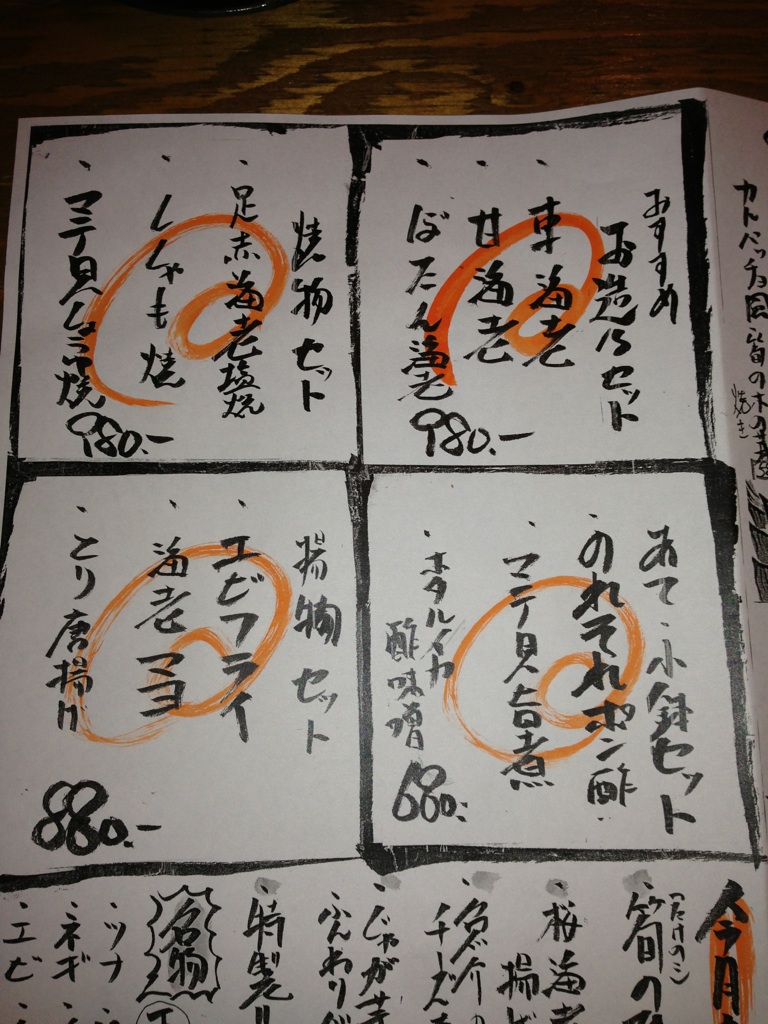 おすすめ
お造りセット
・車海老
・甘海老
・ぼたん海老
980.-
焼物セット
・足赤海老塩焼
・ししゃも焼
・マテ貝
焼
980.-
あて・小鉢セット
・のれそれポン酢
・マテ貝旨煮
・ホタルイカ
酢味噌
680.-
揚物セット
・エビフライ
・海老マヨ
・とり唐揚げ
880.-
今月
(たけのこ)
・筍の
・桜海老
揚げ
・魚介の
チーズ
・じゃが芋
ふんわり
・特製
名物
・ツナ
・ネギ
・エビ